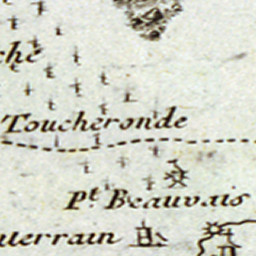 ché
Toucheronde
Pt. Beauvais
uterrain